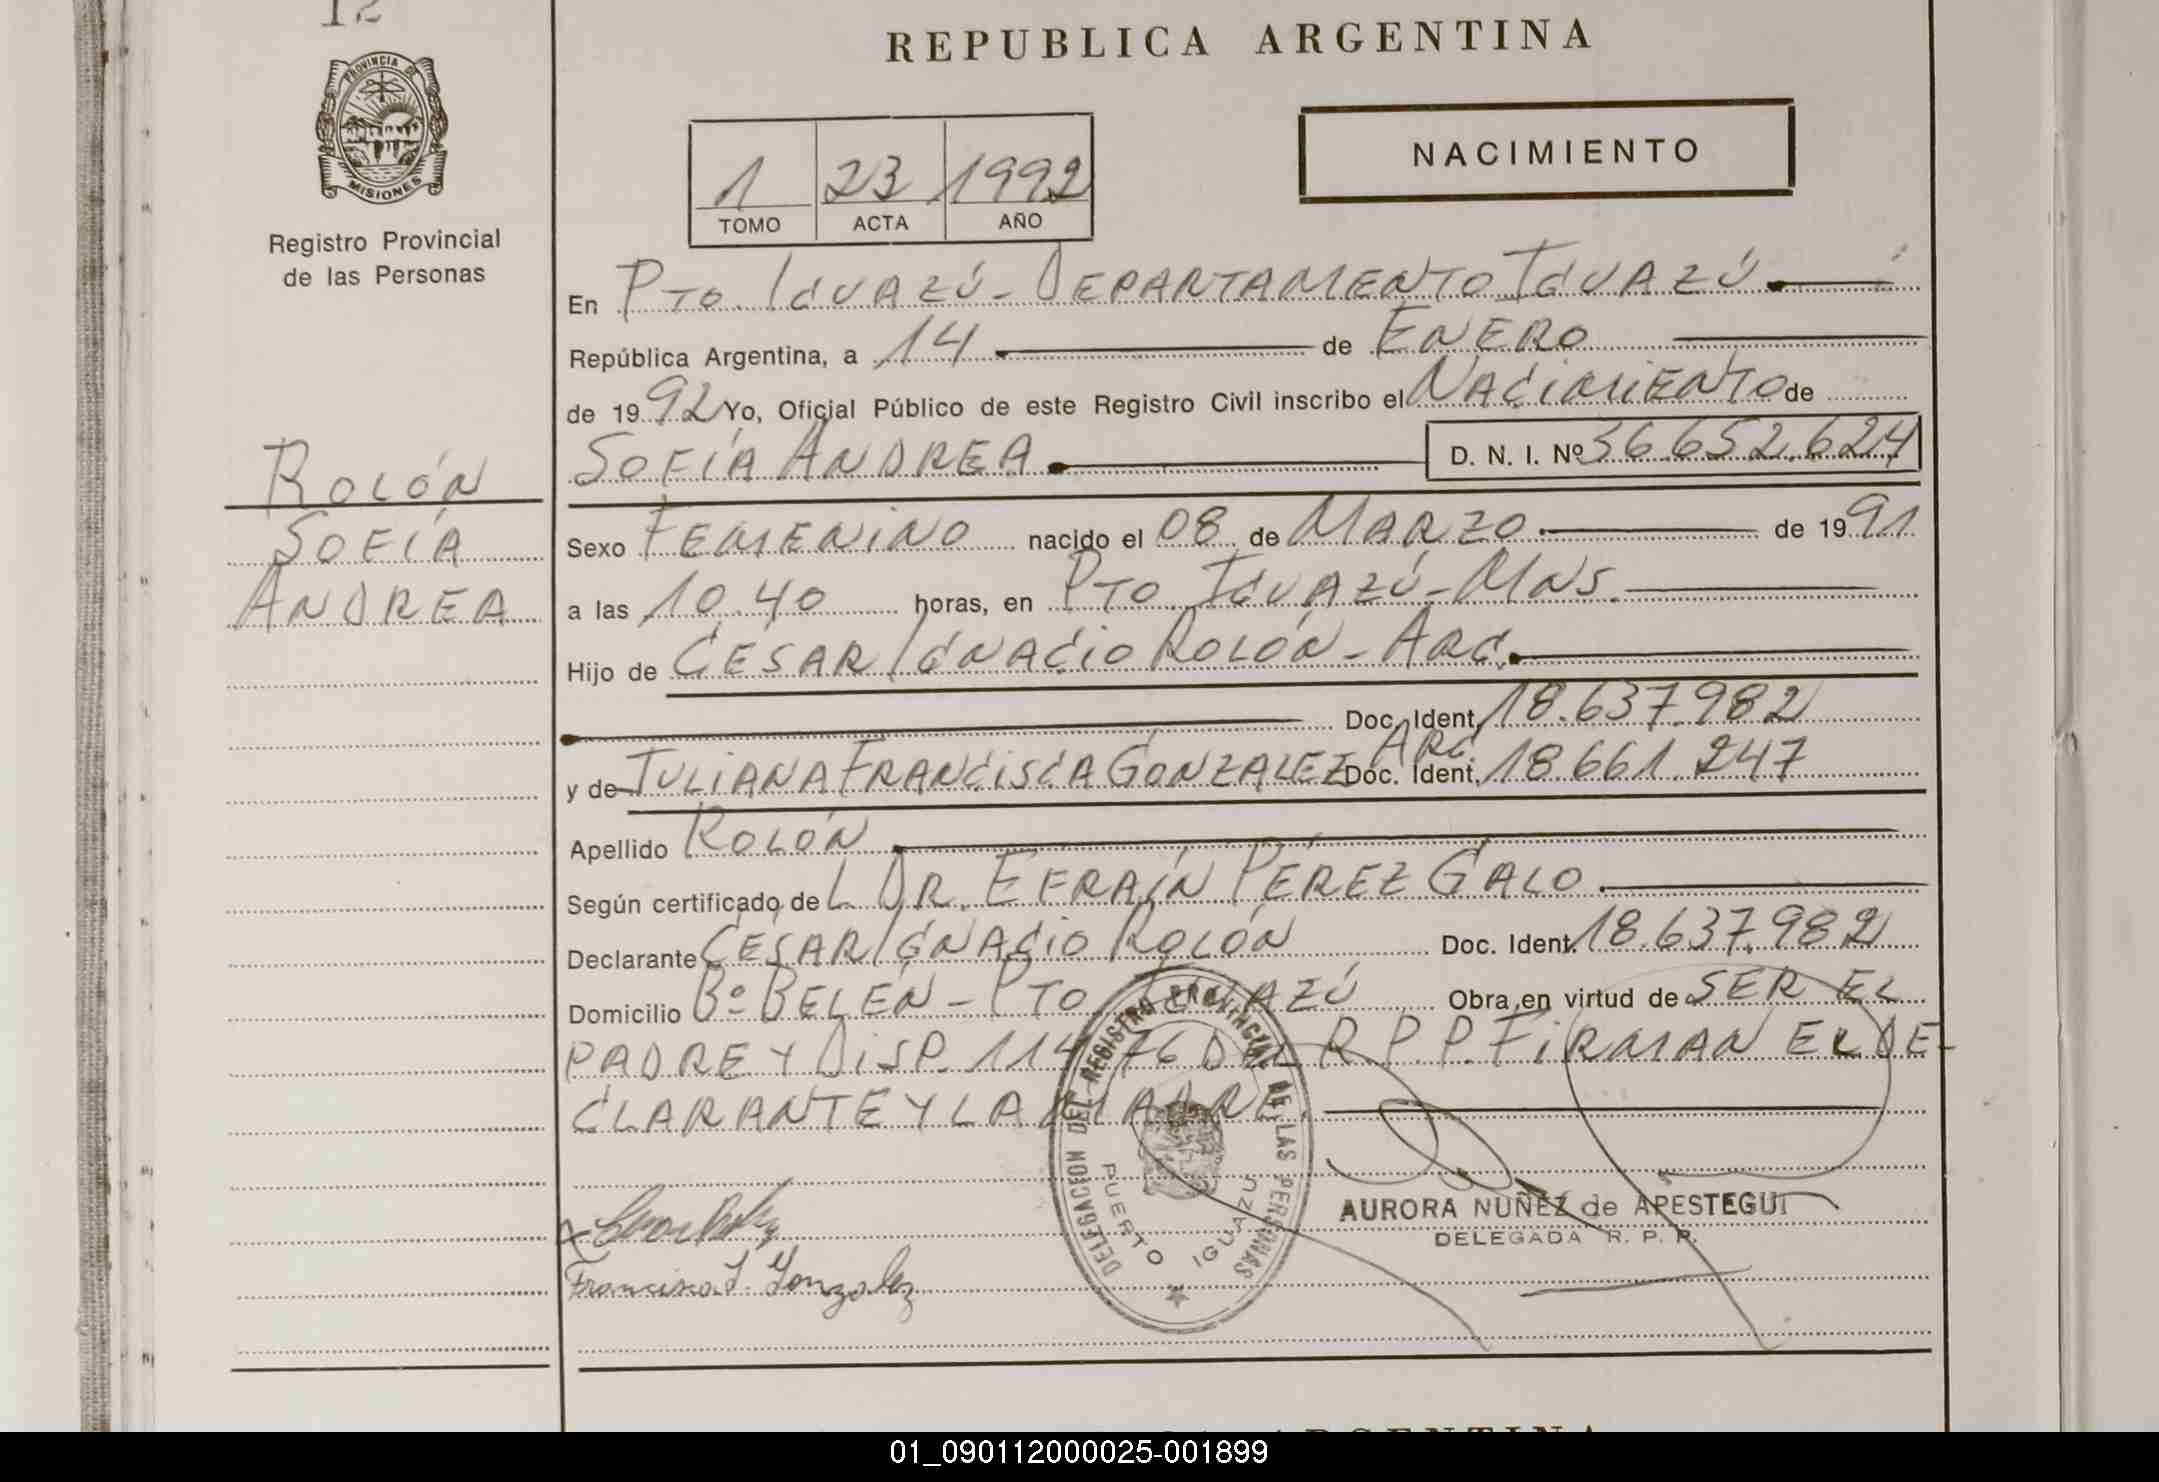 12
REPUBLICA ARGENTINA
PROVINCIA DE
MISIONES
Registro Provincial
de las Personas
1 23 1992
TOMO ACTA AÑO
NACIMIENTO
En PTO. IGUAZÚ - DEPARTAMENTO IGUAZÚ
República Argentina, a 14 de ENERO
de 1992 Yo, Oficial Público de este Registro Civil inscribo el NACIMIENTO de
SOFÍA ANDREA D. N. I. Nº 36.652.624
ROLÓN
SOFÍA
ANDREA
Sexo FEMENINO nacido el 08 de MARZO de 1991
a las 10.40 horas, en PTO IGUAZÚ - MNS.
Hijo de CÉSAR IGNACIO ROLÓN - ARG.
Doc. Ident. 18.637.982
ARG.
y de JULIANA FRANCISCA GONZALEZ Doc. Ident. 18.661.247
Apellido ROLÓN
Según certificado de L DR. EFRAÍN PÉREZ GALO
Declarante CÉSAR IGNACIO ROLÓN Doc. Ident. 18.637.982
Domicilio Bº BELÉN - PTO IGUAZÚ Obra en virtud de SER EL
PADRE Y DISP. 114/76 DEL R.P.P. FIRMAN EL DE-
CLARANTE Y LA MADRE.
DELEGACION DEL REGISTRO PROVINCIAL DE LAS PERSONAS
PUERTO IGUAZU
AURORA NUÑEZ de APESTEGUI
DELEGADA R. P. P.
Francisca J. Gonzalez
ARGENTINA
01_090112000025-001899